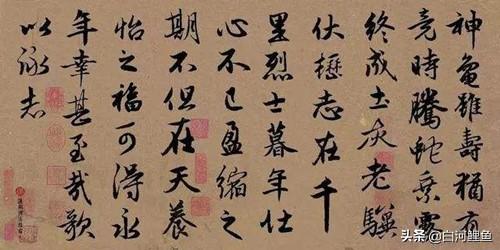 神龜雖壽猶有
竟時騰蛇乗霧
終成土灰老驥
伏櫪志在千
里烈士暮年壮
心不已盈縮之
期不但在天養
怡之福可得永
年幸甚至哉歌
以詠志
头条 @白河鲤鱼